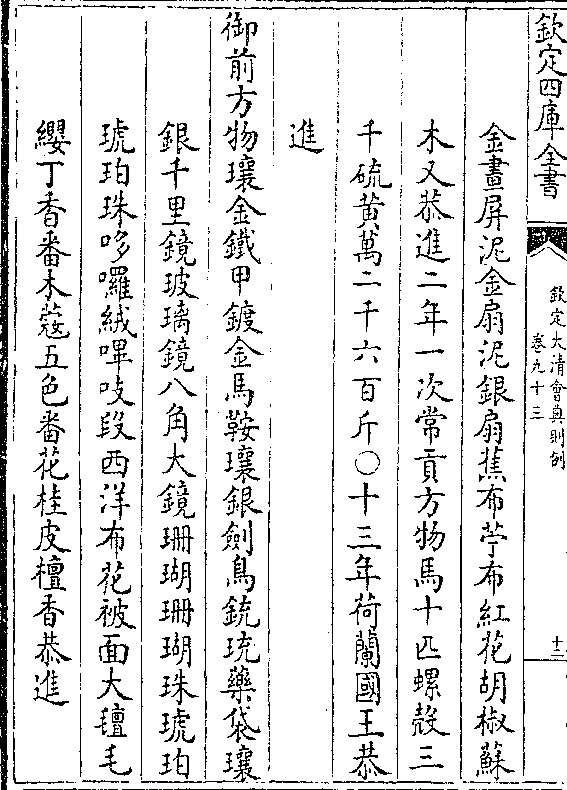 欽定四庫全書
欽定大清會典則例
卷九十三
十二
金畫屏泥金扇泥銀扇蕉布苧布紅花胡椒蘇
木又恭進二年一次常貢方物馬十匹螺殻三
千硫黄萬二千六百斤○十三年荷蘭國王恭
進
御前方物瓖金鐵甲鍍金馬鞍瓖銀劍鳥銃琉藥袋瓖
銀千里鏡玻璃鏡八角大鏡珊瑚珊瑚珠琥珀
琥珀珠哆囉絨嗶吱段西洋布花被面大氊毛
纓丁香番木蔻五色番花桂皮檀香恭進